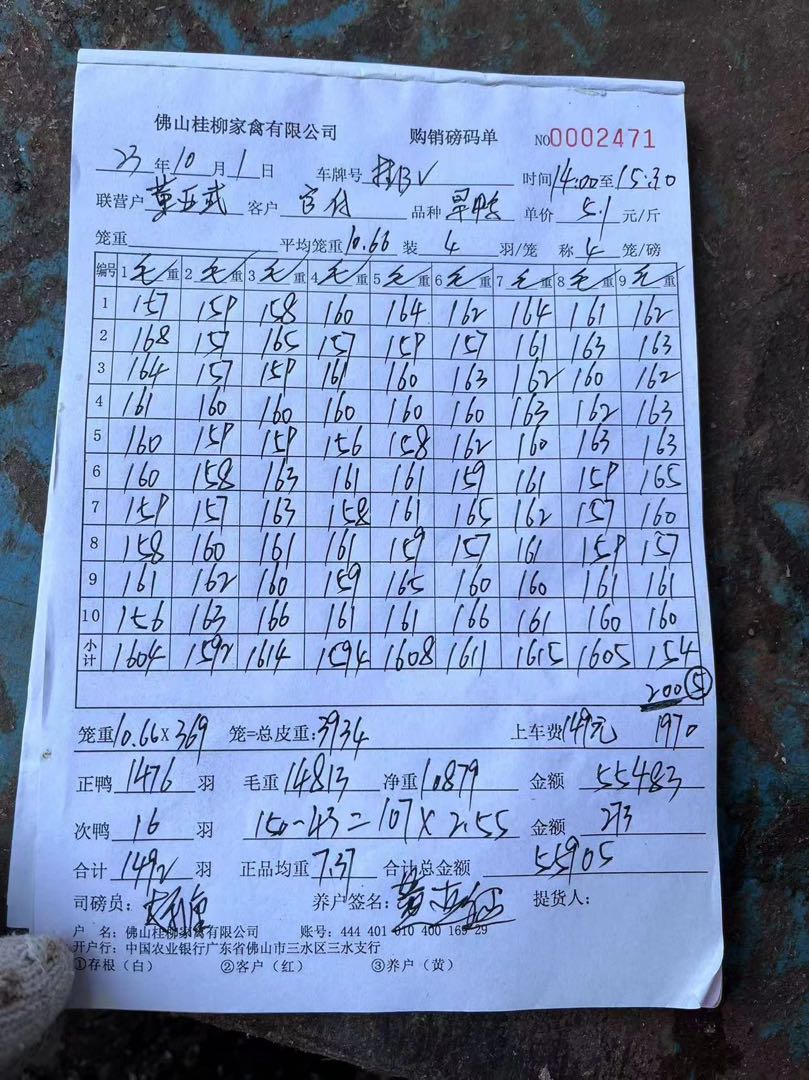 佛山桂柳家禽有限公司 购销磅码单 NO0002471
23年10月1日 车牌号 时间14:00至15:30
联营户 董亚武 客户 品种 旱鸭 单价 5.1 元/斤
笼重 平均笼重10.66 装 4 羽/笼 称 4 笼/磅
编号 1毛重 2毛重 3毛重 4毛重 5毛重 6毛重 7毛重 8毛重 9毛重
1 157 159 158 160 164 162 164 161 162
2 168 157 165 157 159 157 161 163 163
3 164 157 159 161 160 163 162 160 162
4 161 160 160 160 160 160 163 162 163
5 160 159 159 156 158 162 160 163 163
6 160 158 163 161 161 159 161 159 165
7 159 157 163 158 161 165 162 157 160
8 158 160 161 161 159 157 161 159 157
9 161 162 160 159 165 160 160 161 161
10 156 163 166 161 161 166 161 160 160
小计 1604 1592 1614 1594 1608 1611 1615 1605 154
200 ⑤
笼重10.66×369 笼=总皮重:3934 上车费149元 1970
正鸭 1476 羽 毛重14813 净重10879 金额 55483
次鸭 16 羽 150-43=107×2.55 金额 273
合计 1492 羽 正品均重7.37 合计总金额 55905
司磅员: 养户签名: 提货人:
户 名: 佛山桂柳家禽有限公司 账号: 444 401 010 400 169 29
开户行: 中国农业银行广东省佛山市三水区三水支行
①存根(白) ②客户(红) ③养户(黄)